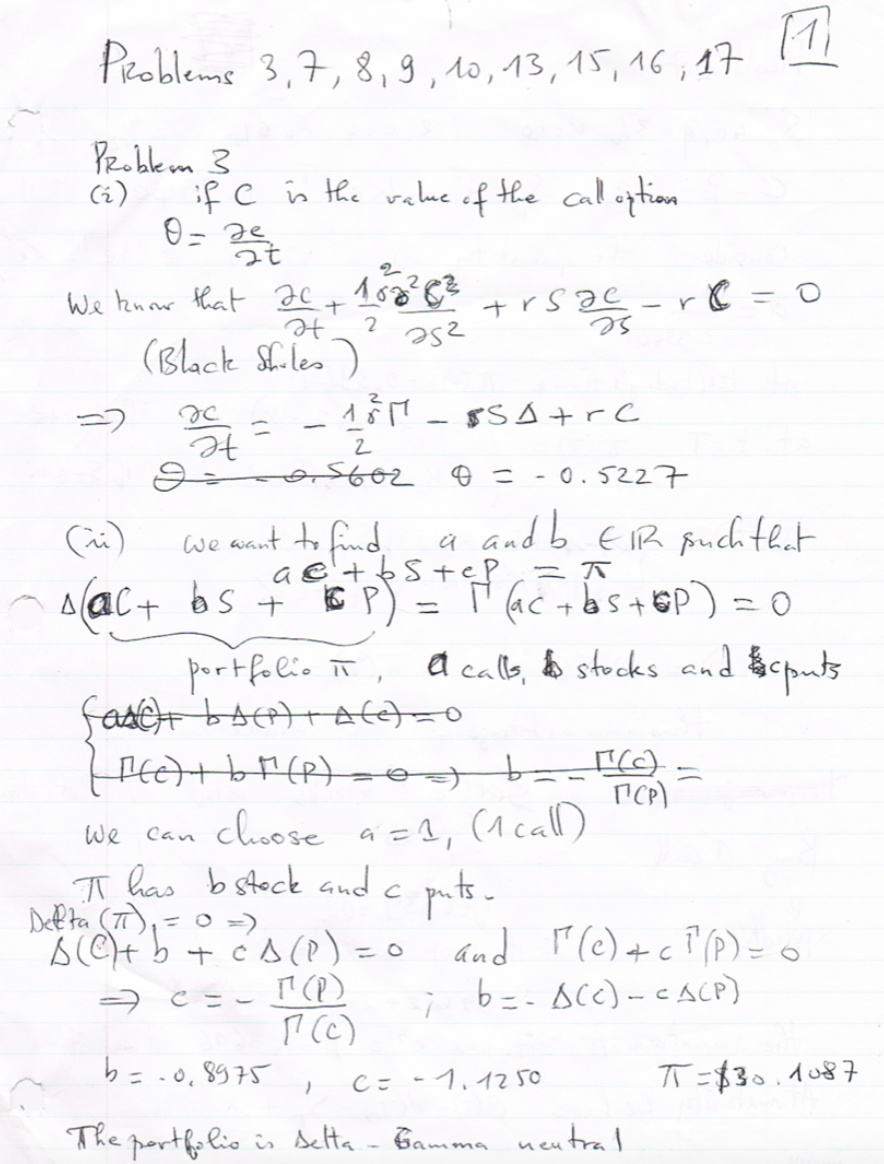 Problems 3, 7, 8, 9, 10, 13, 15, 16, 17 [1]
Problem 3
(i) if C is the value of the call option
θ = ∂c/∂t
We know that ∂C/∂t + 1/2 σ² ∂²C/∂S² + r S ∂c/∂S - r C = 0
(Black Sholes)
=> ∂c/∂t = - 1/2 σ² Γ - rSΔ + rC
θ = - 0.5602 θ = - 0.5227
(ii) we want to find a and b ∈ IR such that
aC + bS + cP = π
Δ(aC + bS + cP) = Γ(aC + bS + cP) = 0
portfolio π, a calls, b stocks and c puts
aΔ(C) + bΔ(P) + Δ(c) = 0
Γ(c) + bΓ(P) = 0 => b = - Γ(C)/Γ(P) =
we can choose a = 1, (1 call)
π has b stock and c puts.
Delta(π) = 0 =>
Δ(C) + b + cΔ(P) = 0 and Γ(c) + cΓ(P) = 0
=> c = - Γ(P)/Γ(C) ; b = - Δ(C) - cΔ(P)
b = -0,8975 , c = -1.1250 π = $30.1087
The portfolio is Delta - Gamma neutral